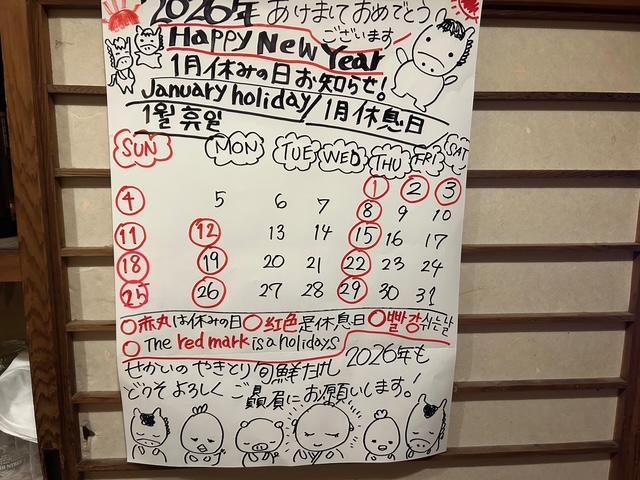 2026年 あけましておめでとう
ございます
Happy New Year
1月休みの日お知らせ!
January holiday/1月休息日
1월 휴일
SUN MON TUE WED THU FRI SAT
1 2 3
4 5 6 7 8 9 10
11 12 13 14 15 16 17
18 19 20 21 22 23 24
25 26 27 28 29 30 31
○赤丸は休みの日○红色是休息日○빨강쉬는날
○The red mark is a holidays
せかいのやきとり旬鮮だれ 2026年も
どうぞよろしくご贔屓にお願いします。!